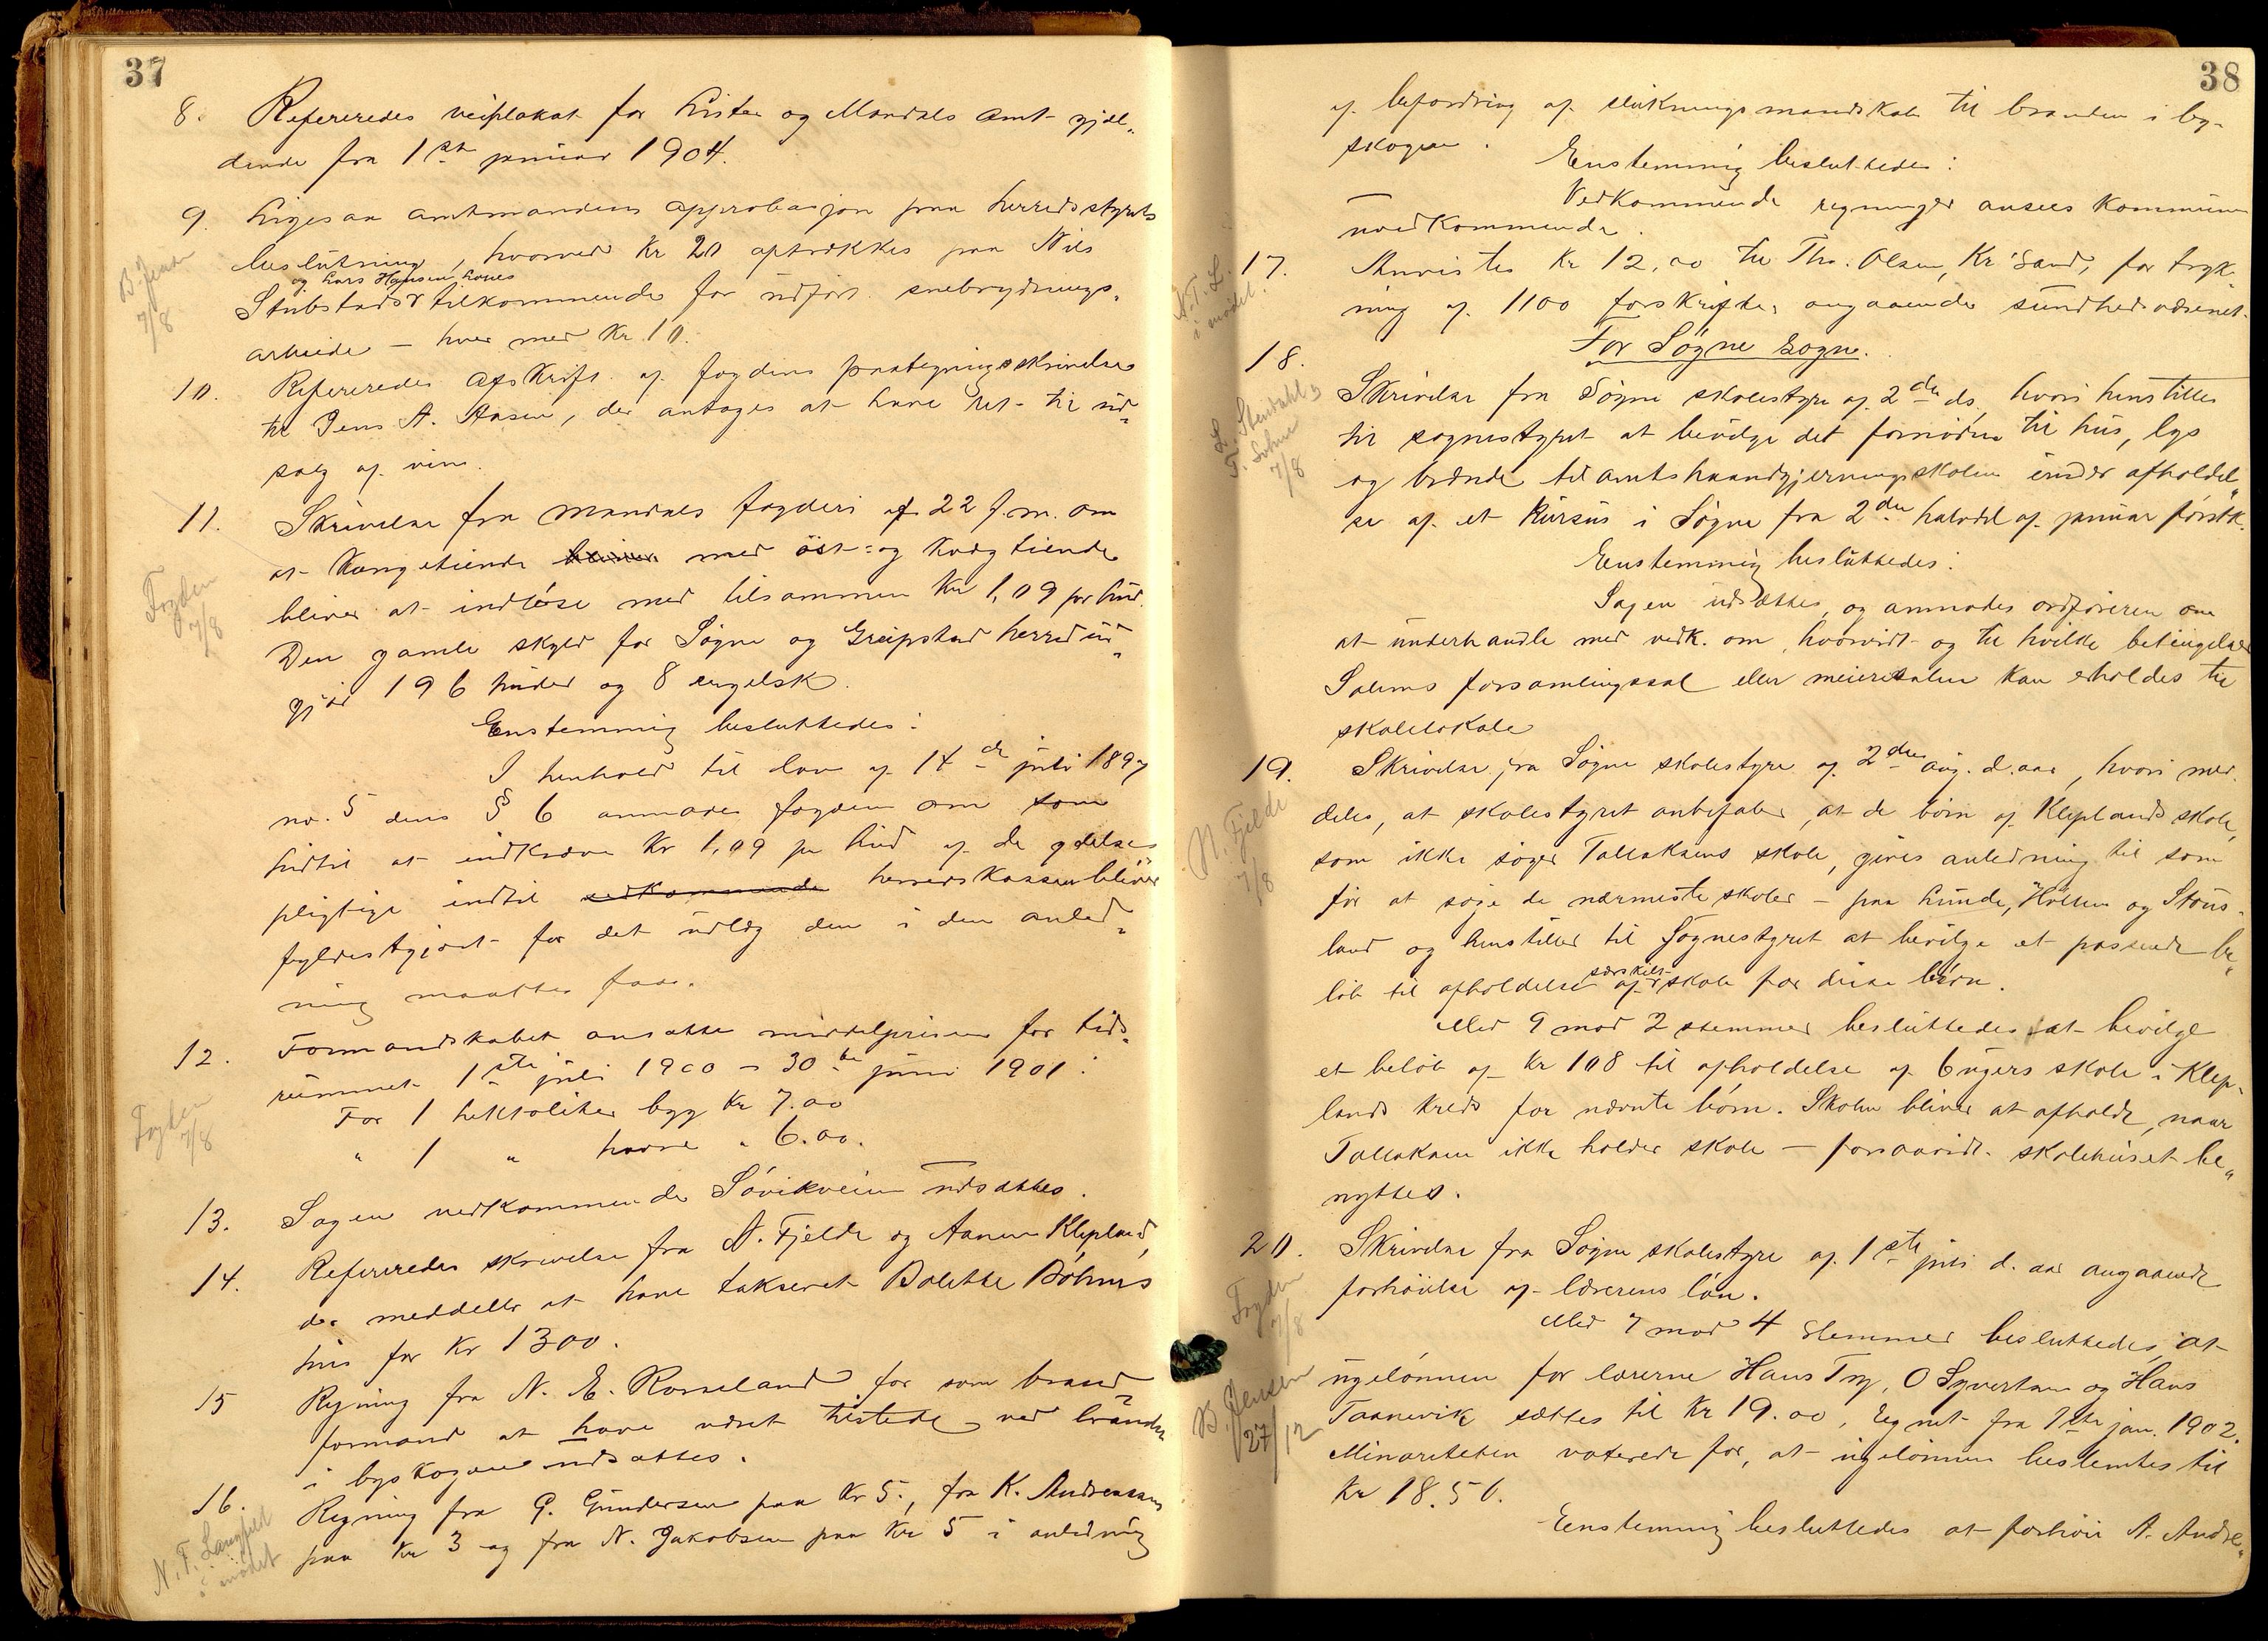 37
8. Refereredes veiplakat for Lister og Mandals amt gjæl„
dende fra 1ste januar 1904.
9. Ligesaa amtmandens approbasjon paa herredsstyrets
beslutning, hvorved Kr 20 aftrækkes paa Nils
og Lars Hansen Loues
Stubstads tilkommende for udført snebrydnings„
arbeide – hver med Kr. 10.
B. Jensen
7/8
10. Refereredes afskrift af fogdens paategningsskrivelse
til Jens A. Aasen, der antages at have ret til ud„
salg af vin.
11. Skrivelse fra Mandals fogderi af 22 f.m. om
at Kongetiende med ost- og Kvægtiende
bliver at indløse med tilsammen Kr 1,09 pr hud.
Den gamle skyld for Søgne og Greipstad herred ud„
gjør 196 huder og 8 engelsk.
Fogden
7/8
Enstemmig besluttedes:
I henhold til lov af 14de juli 1897
no. 5 dens § 6 anmodes fogden om som
hidtil at indkræve Kr 1,09 pr hud af de ydelses
pligtige indtil vedkommende herredskassen bliver
fyldestgjort for det udlæg den i den anled„
ning maatte faa.
12. Formandskabet ansatte middelprisen for tids„
rummet 1ste juli 1900 – 30te juni 1901:
For 1 hektoliter byg Kr 7.00
„ 1 „ havre „ 6.00.
Fogden
7/8
13. Sagen vedkommende Søvikveien udsattes.
14. Refereredes skrivelse fra N. Fjelde og Aanen Klepland,
der meddeler at have takseret Bolette Bøhms
hus for Kr 1300.
15 Regning fra N. E. Rosseland for som brand„
formand at have været tilstede ved branden
i byskogene udsattes.
16. Regning fra G. Gundersen paa Kr 5., fra K. Andreassen
paa Kr 3 og fra N. Jakobsen paa Kr 5 i anledning
N. F. Langfeldt
i mødet
38
af befordring af slukningsmandskab til branden i by-
skogen.
Enstemmig besluttedes:
Vedkommende regninger ansees Kommunen
uvedkommende.
17. Anvistes Kr 12,00 til Tho. Olsen, Kr Sand, for tryk„
ning af 1100 forskrifter angaaende sundhedsvæsenet.
N. F. L.
i mødet.
For Søgne Sogn.
18. Skrivelse fra Søgne skolestyre af 2den ds, hvori henstilles
til sognestyret at bevilge det fornødne til hus, lys
og brænde til amtshaandgjerningsskolen under afholdel„
se af et Kursus i Søgne fra 2den halvdel af januar førstk.
7/8
Eenstemmig besluttedes:
Sagen udsættes, og anmodes ordføreren om
at underhandle med vedk. om, hvorvidt og til hvilke betingelser
Salems forsamlingssal eller meierisalen kan erholdes til
skolelokale
19. Skrivelse fra Søgne skolestyre af 2den aug. d. aar, hvori med„
deles, at skolestyret anbefaler, at de børn af Kleplands skole,
som ikke søger Tallaksens skole, gives anledning til som
før at søge de nærmeste skoler – paa Lunde, Høllen og Stous„
land og henstiller til Sognestyret at bevilge et passende be„
særskilt
løb til afholdelse af skole for disse børn.
N. Fjelde
7/8
Med 9 mod 2 stemmer besluttedes at bevilge
et beløb af Kr 108 til afholdelse af 6 ugers skole i Klep„
lands kreds for nævnte børn. Skolen bliver at afholde, naar
Tallaksen ikke holder skole – forsaavidt skolehuset be„
nyttes.
20. Skrivelse fra Søgne skolestyre af 1ste juli d. aar angaaende
forhøielse af lærerens løn.
Fogden
7/8
Med 7 mod 4 stemmer besluttedes, at
ugelønnen for lærerne Hans Try, O Syvertsen og Hans
Taanevik sættes til Kr 19.00, regnet fra 1ste jan. 1902.
Minoriteten voterede for, at ugelønnen bestemtes til
Kr 18.50.
B. Jensen
27/12
Eenstemmig besluttedes at forhøie A. Andre„